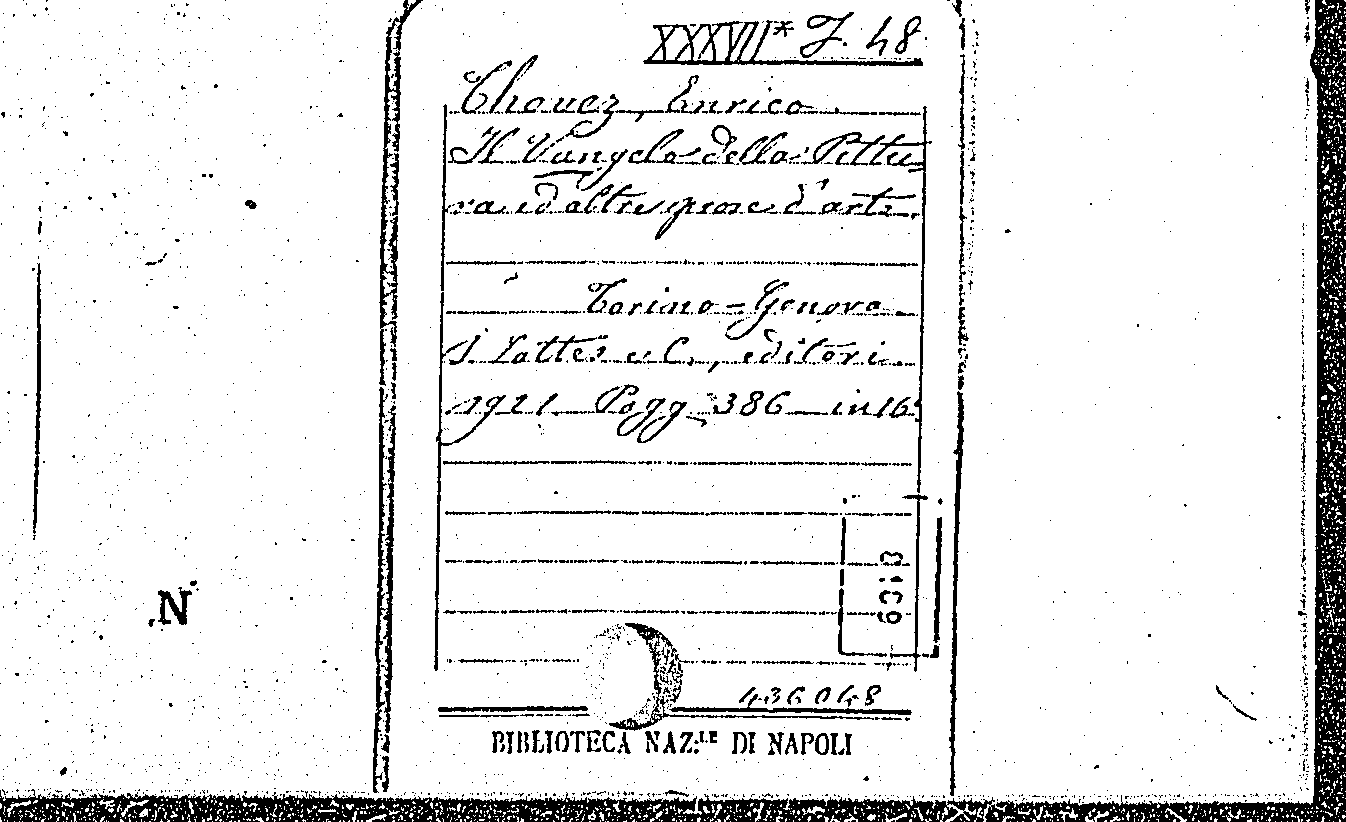 XXXVII* J. 48
Thovez, Enrico.
Il Vangelo della Pittu=
ra ed altre prose d'arte.
Torino=Genova.
S. Lattes e C., editori.
1921 Pagg. 386 in 16°
N
436048
BIBLIOTECA NAZ:LE DI NAPOLI